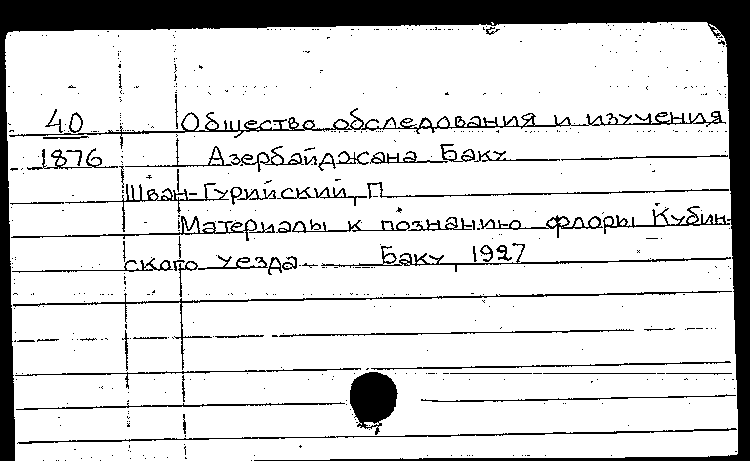 40 Общество обследования и изучения
1876 Азербайджана. Баку
Шван-Гурийский, П.
Материалы к познанию флоры Кубин-
ского уезда. Баку, 1927